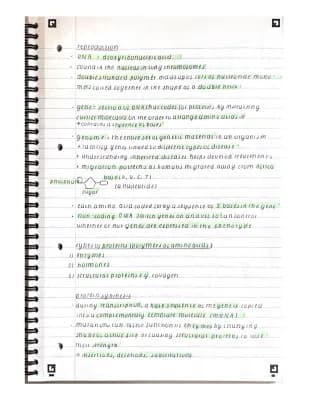 reproduction
- DNA = deoxyribonucleic acid
- found in the nucleus in long chromosomes
- double stranded polymer made up of lots of nucleotide mono-
mers coiled together in the shape of a double helix
- gene: section of DNA that codes for proteins by
order to amino acids
* contains a sequence of bases
- genome: the entire set of genetic material in an organism
* tracing genes linked to different types of disease
* understanding inherited diseases helps develop treatments
* migration patterns as humans migrated away from Africa
phosphate
base (A, G, C, T)
sugar
(a nucleotide)
- each amino acid coded for by a sequence of 3 bases in the gene
- non-coding DNA switch genes on and off to control
whether or not genes are expressed in the phenotype
types of proteins (polymers of amino acids)
1) enzymes
2) hormones
3) structural proteins e.g. collagen
protein synthesis
- during transcription, a base sequence of the gene is copied
into a complementary template molecule (mRNA)
- mutations can affect function of enzymes by changing
shape of active site or causing structural proteins to lose
their strength
* insertions, deletions, substitutions